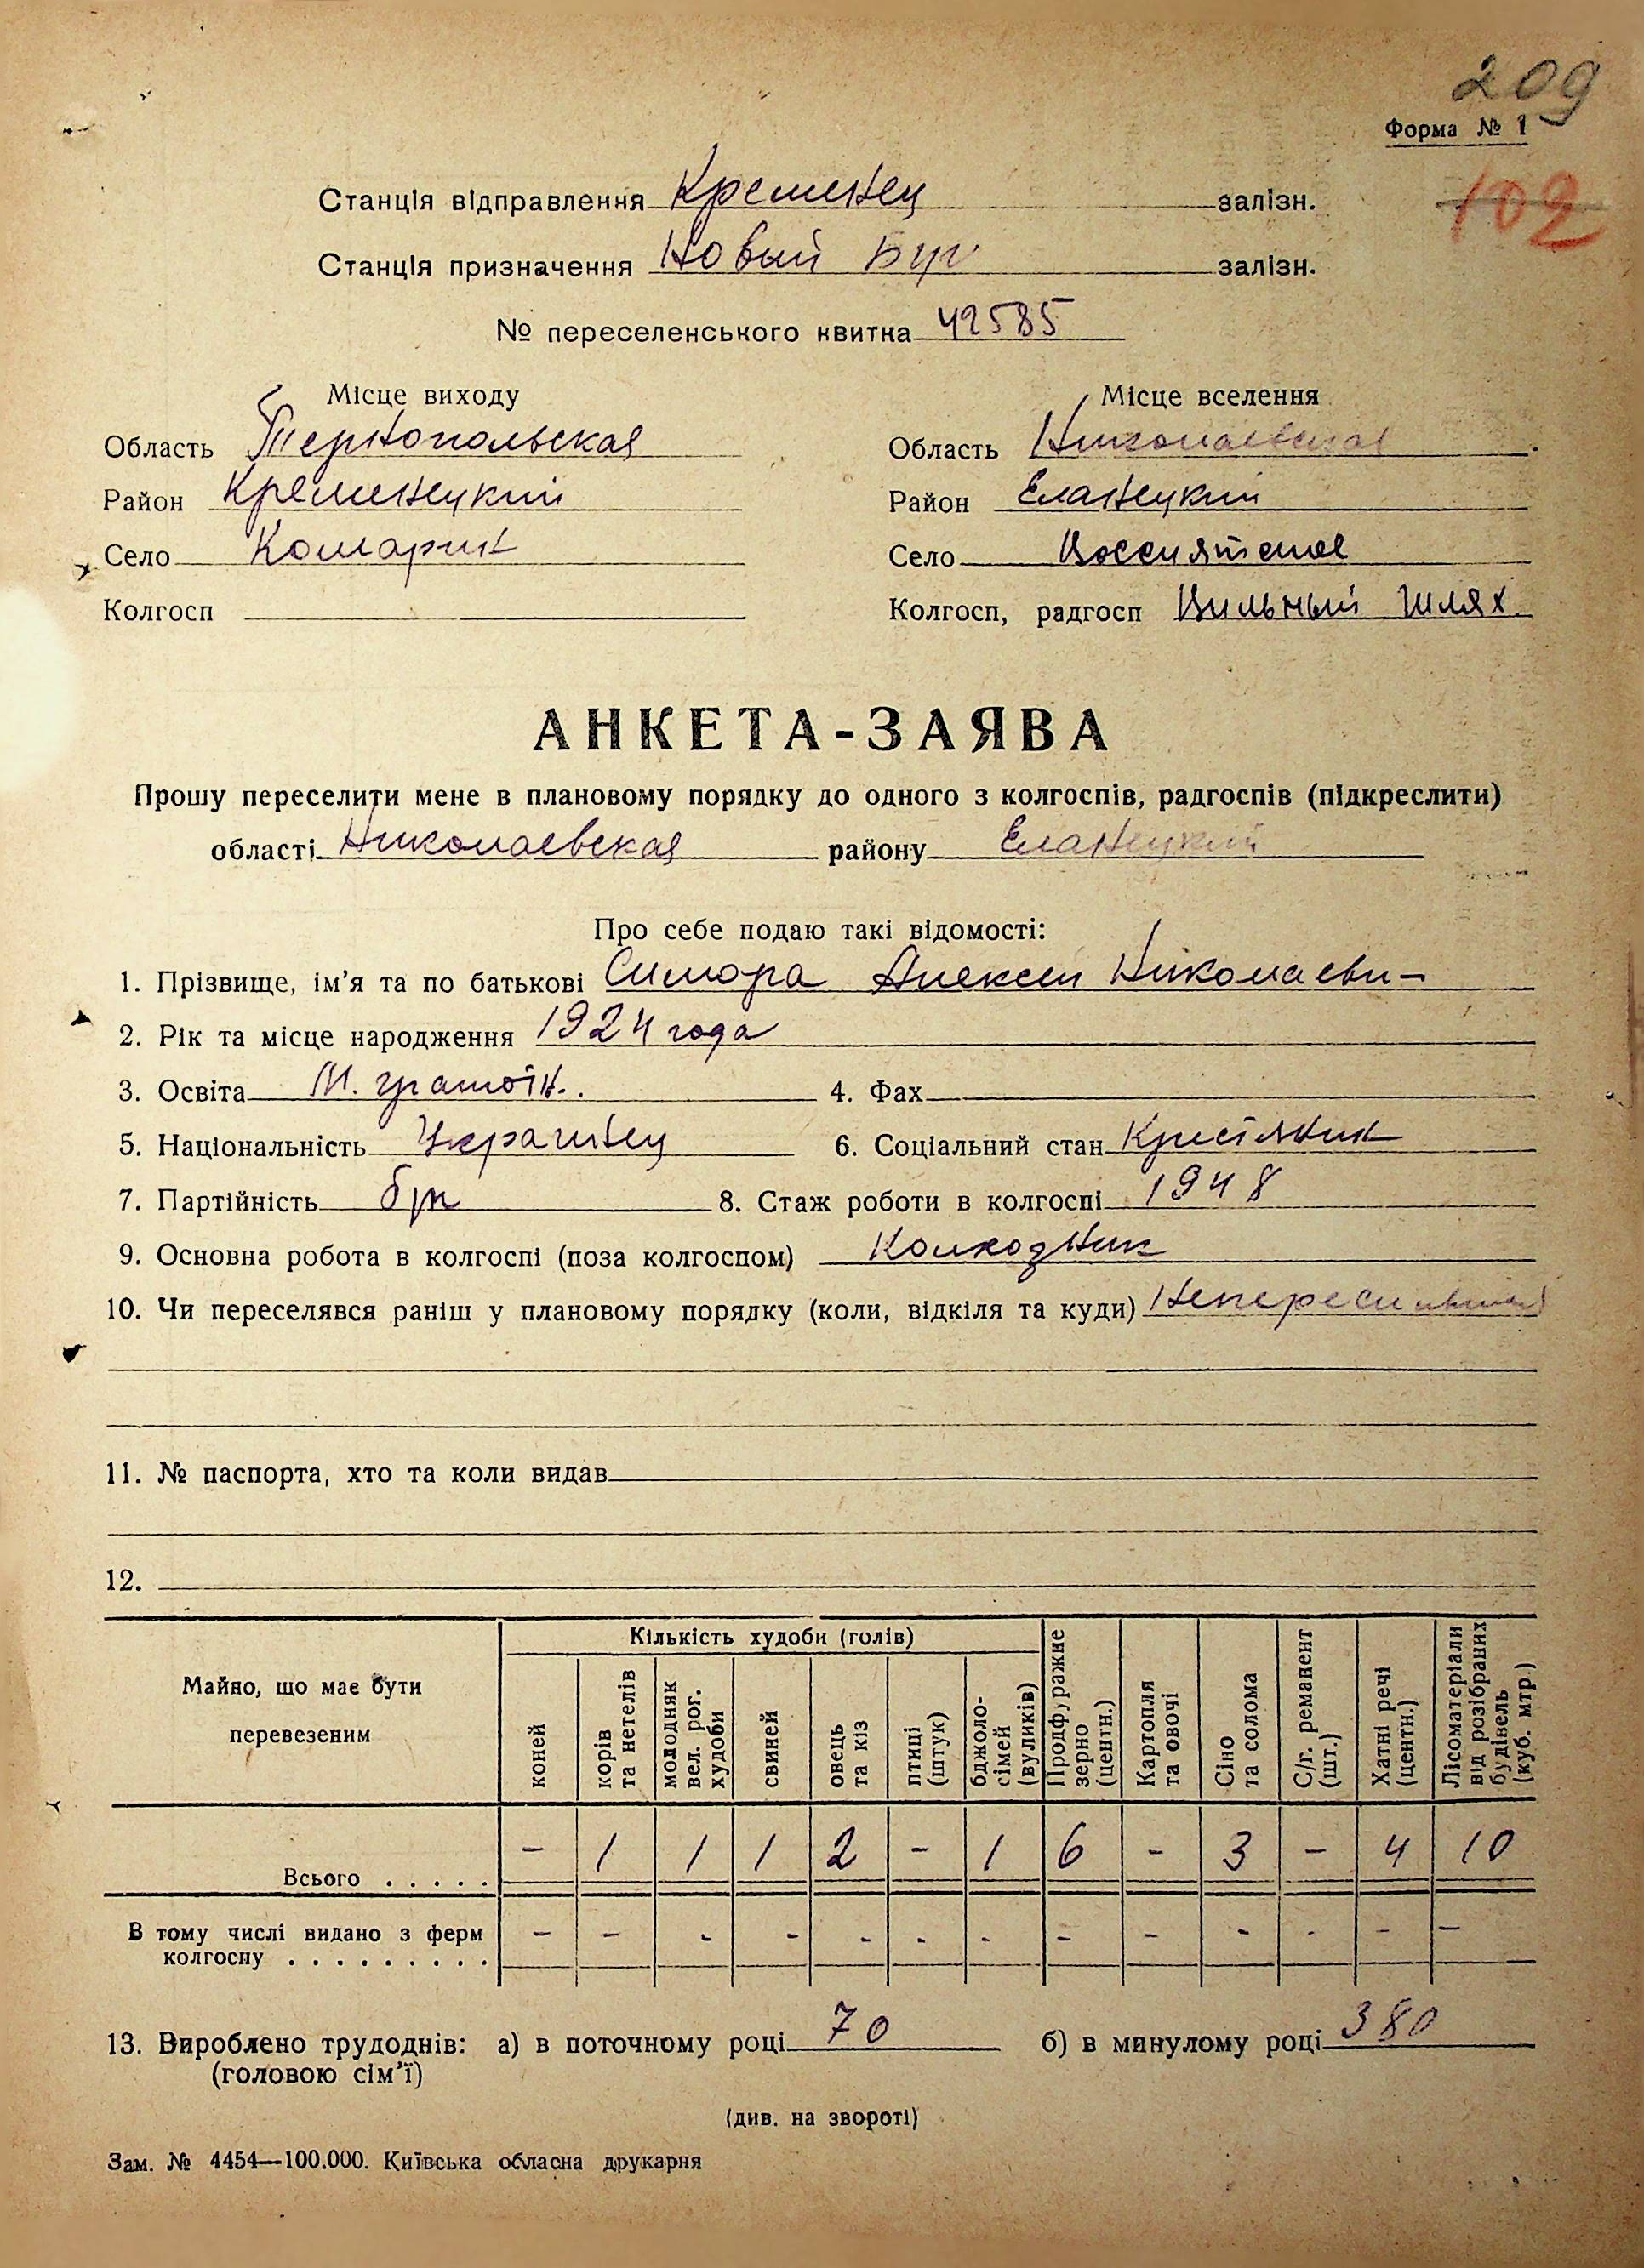 209
Форма № 1
102
Станція відправлення Кременец залізн.
Станція призначення Новый Буг залізн.
№ переселенського квитка 42585
Місце виходу
Місце вселення
Область Тернопольская
Область Николаевская
Район Кременецкий
Район Еланецкий
Село Комарин
Село
Колгосп
Колгосп, радгосп Вильный шлях
АНКЕТА-ЗАЯВА
Прошу переселити мене в плановому порядку до одного з колгоспів, радгоспів (підкреслити)
області Николаевская району Еланецкий
Про себе подаю такі відомості:
1. Прізвище, ім'я та по батькові Симора Алексей
2. Рік та місце народження 1924 года
3. Освіта М. грамотн. 4. Фах
5. Національність Украинец 6. Соціальний стан
7. Партійність бп 8. Стаж роботи в колгоспі 1948
9. Основна робота в колгоспі (поза колгоспом)
10. Чи переселявся раніш у плановому порядку (коли, відкіля та куди)
11. № паспорта, хто та коли видав
12.
Майно, що має бути перевезеним
Кількість худоби (голів)
коней
корів та нетелів
молодняк вел. рог. худоби
свиней
овець та кіз
птиці (штук)
бджоло-сімей (вуликів)
Продфуражне зерно (центн.)
Картопля та овочі
Сіно та солома
С/г. реманент (шт.)
Хатні речі (центн.)
Лісоматеріали від розібраних будівель (куб. мтр.)
Всього . . . . . - 1 1 1 2 - 1 6 - 3 - 4 10
В тому числі видано з ферм
колгоспу . . . . . . . . . - - - - - - - - - - - - -
13. Вироблено трудоднів: а) в поточному році 70 б) в минулому році 380
(головою сім'ї)
(див. на звороті)
Зам. № 4454—100.000. Київська обласна друкарня